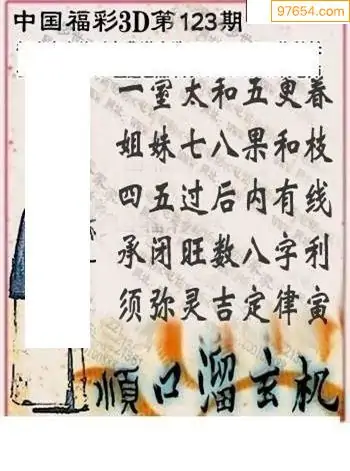 97654.com
中国福彩3D第123期
一室太和五更春
姐妹七八果和枝
四五过后内有线
承闭旺数八字利
须弥灵吉定律寅
顺口溜玄机